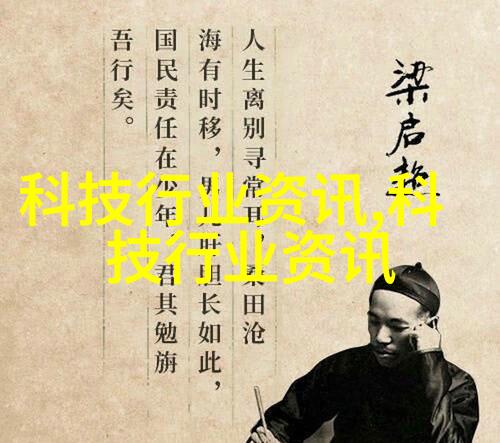 梁启超
人生离别寻常耳，桑田沧
海有时移，男儿肝胆长如此，
国民责任在少年。君其勉旃
吾行矣。
科技行业资讯,科
技行业资讯